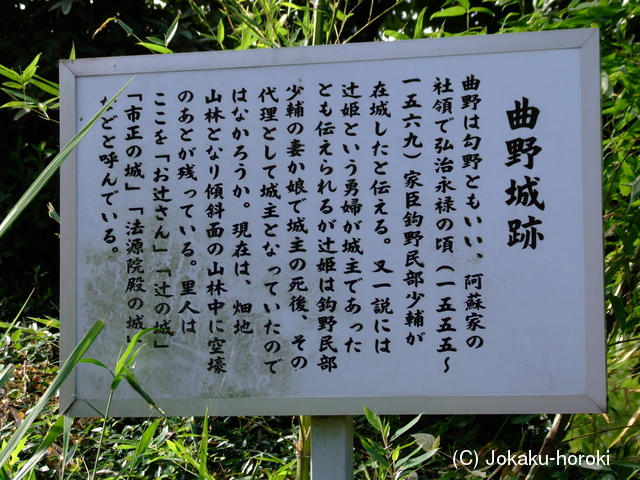 曲野城跡
曲野は勾野ともいい、阿蘇家の
社領で弘治永禄の頃（一五五五〜
一五六九）家臣鈎野民部少輔が
在城したと伝える。又一説には
辻姫という勇婦が城主であった
とも伝えられるが辻姫は鈎野民部
少輔の妻か娘で城主の死後、その
代理として城主となっていたので
はなかろうか。現在は、畑地
山林となり傾斜面の山林中に空壕
のあとが残っている。里人は
ここを「お辻さん」「辻の城」
「市正の城」「法源院殿の城」
などと呼んでいる。
(C) Jokaku-horoki